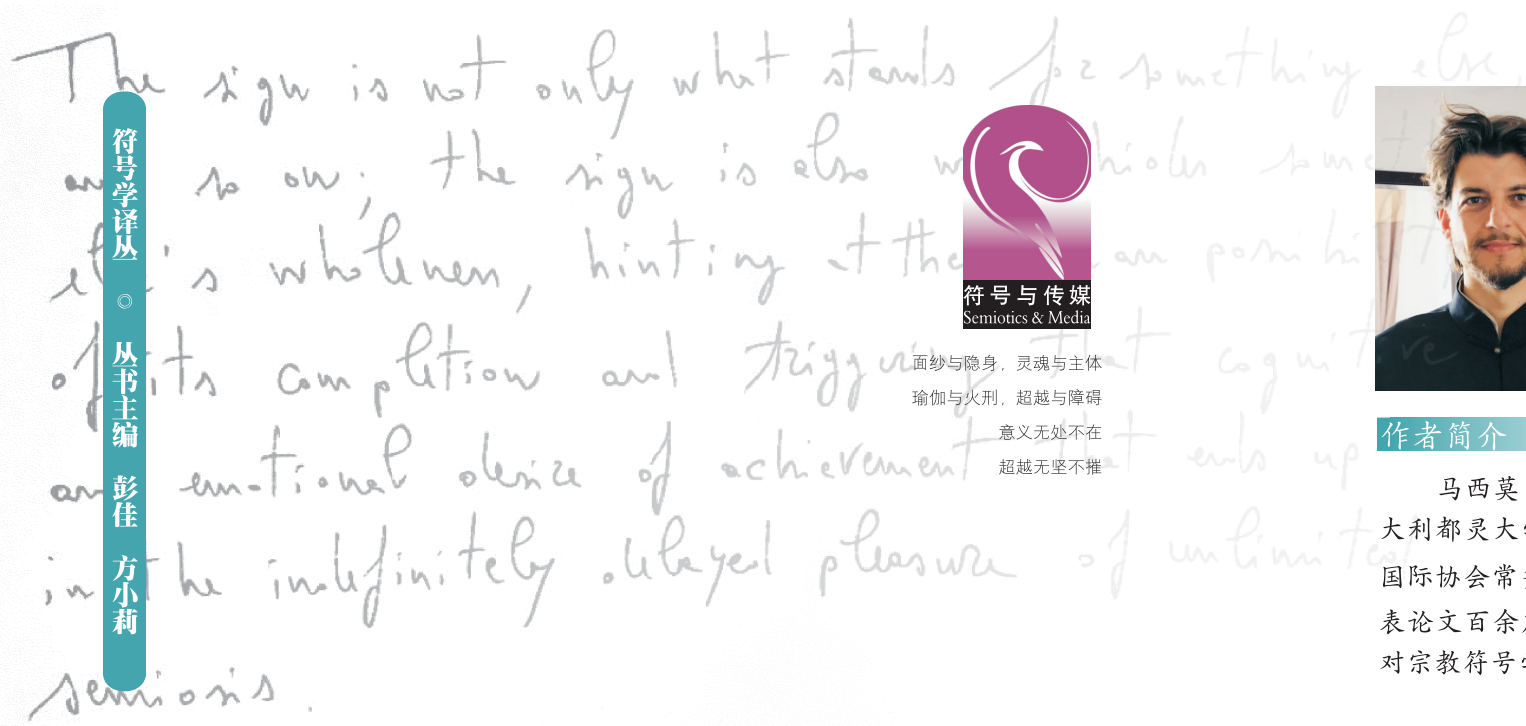 The sign is not only what stands for something else,
so on; the sign is also hides
's wholeness, hinting at the
of its completion and triggering that cognitive
emotional desire of achievement that ends up
in the indefinitely delayed pleasure of unlimited
semiosis.
符号学译丛 ◎ 丛书主编 彭佳 方小莉
符号与传媒
Semiotics & Media
面纱与隐身，灵魂与主体
瑜伽与火刑，超越与障碍
意义无处不在
超越无坚不摧
作者简介
马西莫
大利都灵大
国际协会常
表论文百余
对宗教符号